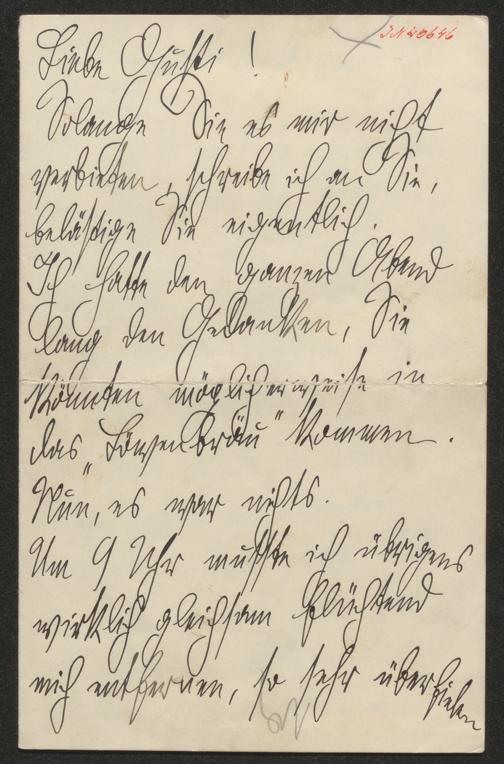 JN 43646
Liebe Gusti!
Solange Sie es mir nicht
verbieten, schreibe ich an Sie,
belästige Sie eigentlich.
Ich hatte den ganzen Abend
lang den Gedanken, Sie
könnten möglicherweise in
das „Löwenbräu“ kommen.
Nun, es war nichts.
Um 9 Uhr mußte ich übrigens
wirklich gleichsam flüchtend
mich entfernen, so sehr überfielen